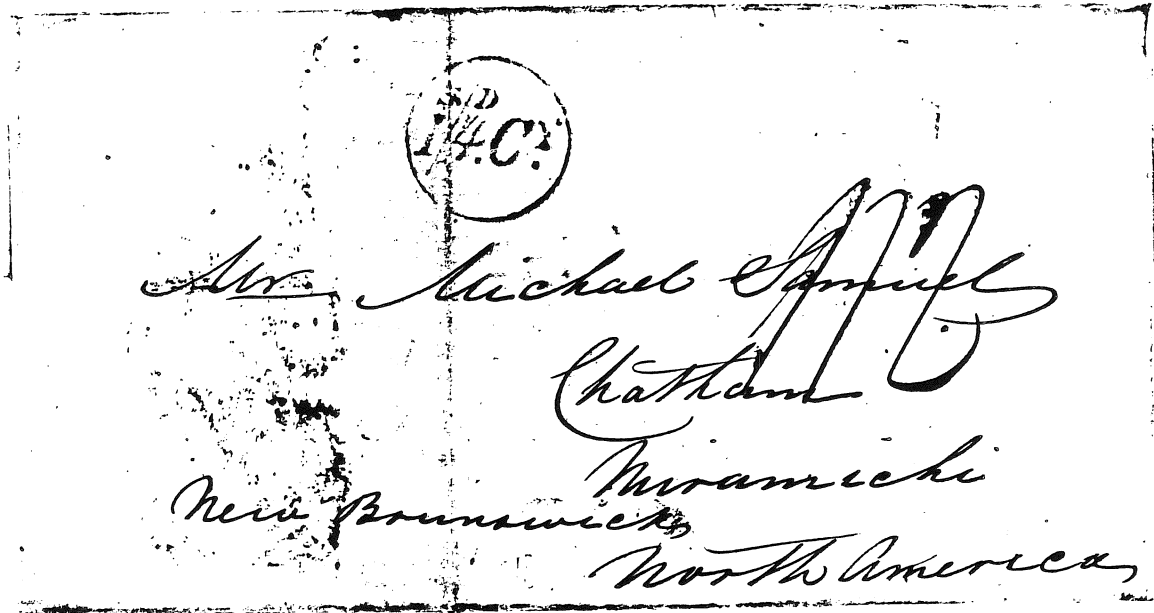 S/D
1/4.Cy.
Mr. Michael Samuel
Chatham
Miramichi
New Brunswick
North America